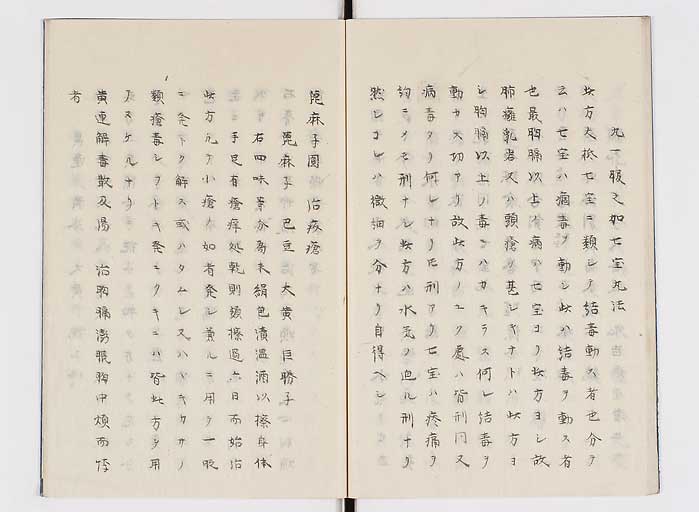 丸一服之如七宝丸法
此方大抵七宝ニ類シテ結毒動ス者也分テ
云ハ七宝ハ病毒ヲ動シ此ハ結毒ヲ動ス者
也最胸膈以上ノ病ハ七宝ヨリ此方ヨシ故
肺癰乳岩又ハ頭瘡ノ甚シキナトハ此方ヨ
シ胸膈以上ノ毒ニハカキラス何レ結毒ヲ
動カス功アリ故此方ノユク処ハ皆刑同又
病毒タリ何レナリ𪜈刑アリ七宝ハ疼痛ヲ
詢ニイモ刑ナシ此方ハ水気ノ迫ル刑ナリ
然シコレハ微細ヲ分ナリ自得ヘシ
蓖麻子圓 治疥瘡
蓖麻子 巴豆 大黄 巨勝子
右四味等分為末絹包漬温酒以擦身体
手足有瘡痒処乾則換擦過六日而始治
此方元ヲ小瘡ノ如者発シ兼ルニ用テ一股
ニ発トク解ス或ハタムシ又ハハキクサノ
類瘡毒シヲトキ発ニクキニハ皆此方ヲ用
テスケルナリ
黄連解毒散及湯 治胸膈澎脹胸中煩而悸
者